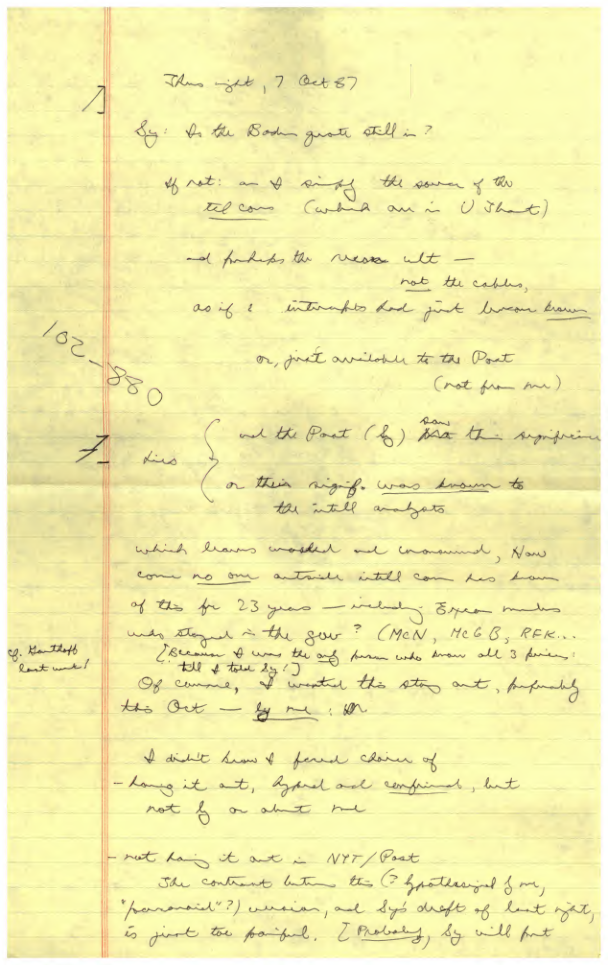 1]
Thurs night, 7 Oct 87
Sy: Is the Baden quote still in?
If not: am I simply the source of the
telcons (which are in U Thant)
and perhaps the ult —
not the cables,
as if intercepts had just become known
or, just available to the Post
(not from me)
102-880
and the Post (Sy) saw their significance
7.
lies
or their signif. was known to
the intell analysts
which leaves unasked and unanswered, How
come no one outside intell com has known
of this for 23 years — including Excom members
who stayed in the gov? (McN, McGB, RFK...
cf. Garthoff
last week!
[Because I was the only person who knew all 3 pieces:
till I told Sy!]
Of course, I wanted this story out, preferably
this Oct — by me:
I didn't know I faced choice of
- having it out, and confirmed, but
not by or about me
- not having it out in NYT/Post
The contrast between this (? hypothesized by me,
"paranoid"?) version, and Sy's draft of last night,
is just too painful. [Probably, Sy will put